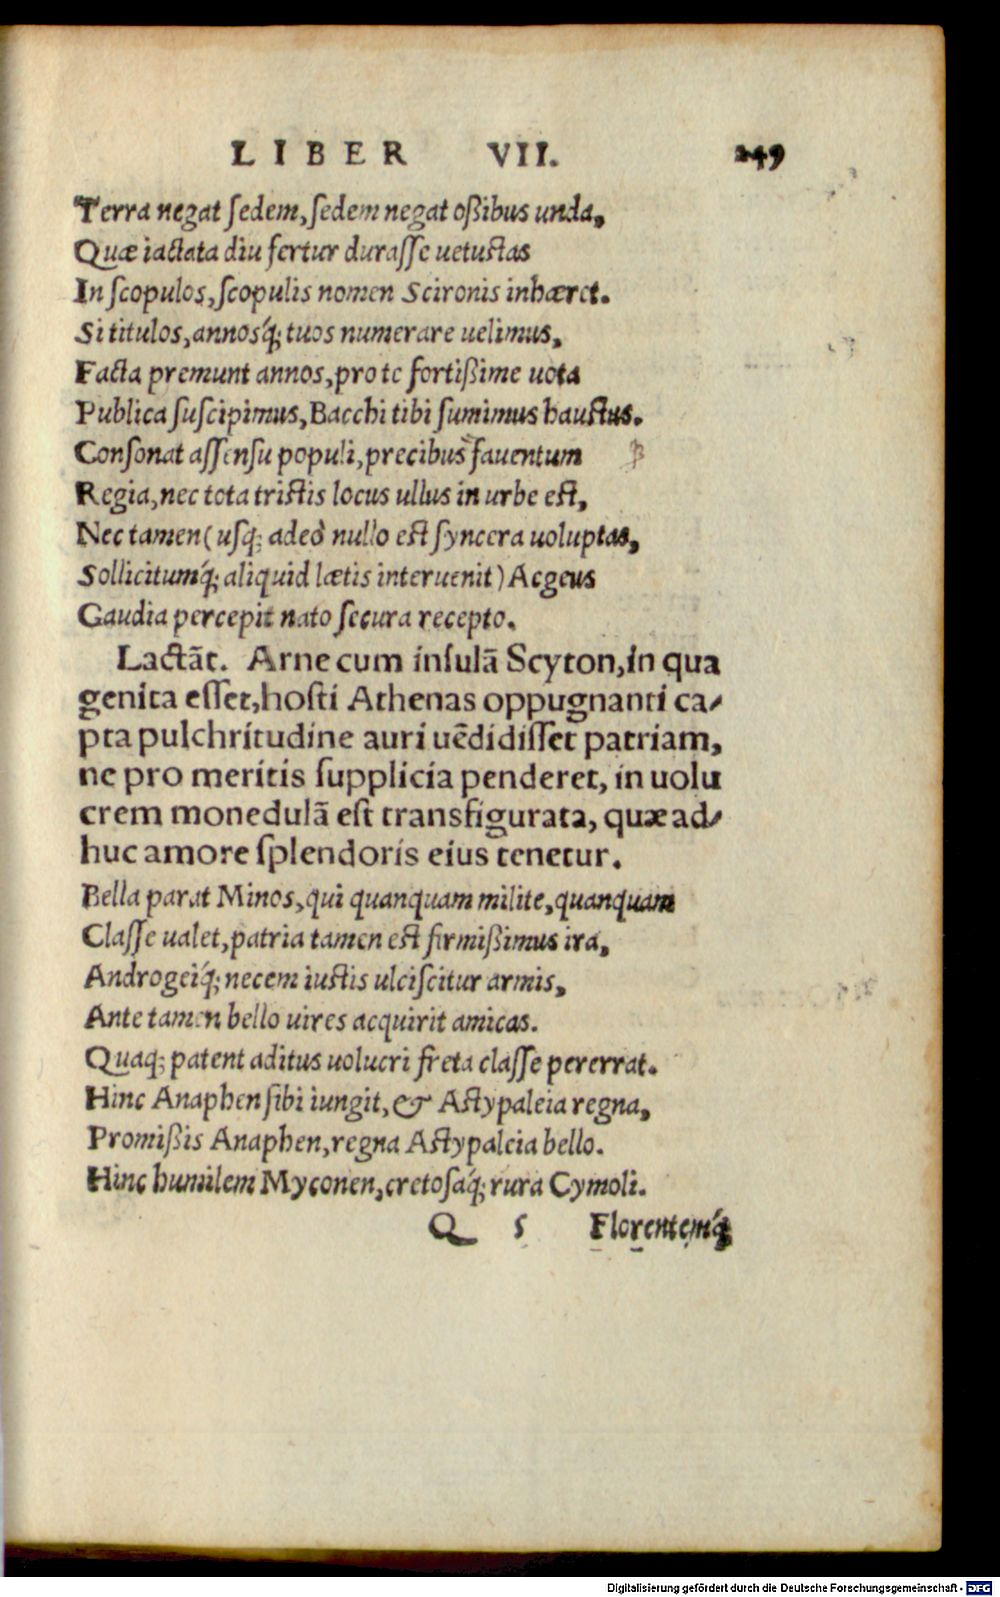 LIBER VII. 249
Terra negat ſedem, ſedem negat oßibus unda,
Quæ iactata diu fertur duraſſe uetuſtas
In ſcopulos, ſcopulis nomen Scironis inhæret.
Si titulos, annosq́; tuos numerare uelimus,
Facta premunt annos, pro te fortißime uota
Publica ſuſcipimus, Bacchi tibi ſumimus hauſtus.
Conſonat aſſenſu populi, precibusq̃ fauentum
Regia, nec tota triſtis locus ullus in urbe eſt,
Nec tamen (uſq; adeò nullo eſt ſyncera uoluptas,
Sollicitumq́; aliquid lætis interuenit) Aegeus
Gaudia percepit nato ſecura recepto.
Lactãt. Arne cum inſulã Scyron, in qua
genita eſſet, hoſti Athenas oppugnanti ca-
pta pulchritudine auri uẽdidiſſet patriam,
ne pro meritis ſupplicia penderet, in uolu
crem monedulã eſt transfigurata, quæ ad-
huc amore ſplendoris eius tenetur.
Bella parat Minos, qui quanquam milite, quanquam
Claſſe ualet, patria tamen eſt firmißimus ira,
Androgeiq́; necem iuſtis ulciſcitur armis,
Ante tamen bello uires acquirit amicas.
Quaq; patent aditus uolucri freta claſſe pererrat.
Hinc Anaphen ſibi iungit, & Aſtypaleia regna,
Promißis Anaphen, regna Aſtypaleia bello.
Hinc humilem Myconen, cretoſaq́; rura Cymoli.
Q 5 Florentemq́;
Digitalisierung gefördert durch die Deutsche Forschungsgemeinschaft - DFG